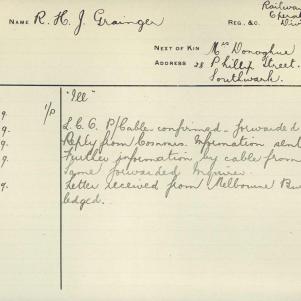 Railway
NAME R. H. J. Grainger
REG. &C.
NEXT OF KIN Mrs Donoghue
ADDRESS 28 Phillip Street.
Southwark.
"Ill"
9. 1/P L.C.C. P/Cable confirmed. forwarded
9. Reply from Commrs. Information sent
9. Further information by cable from
Same forwarded Inquirer.
9. Letter received from Melbourne
ledged.